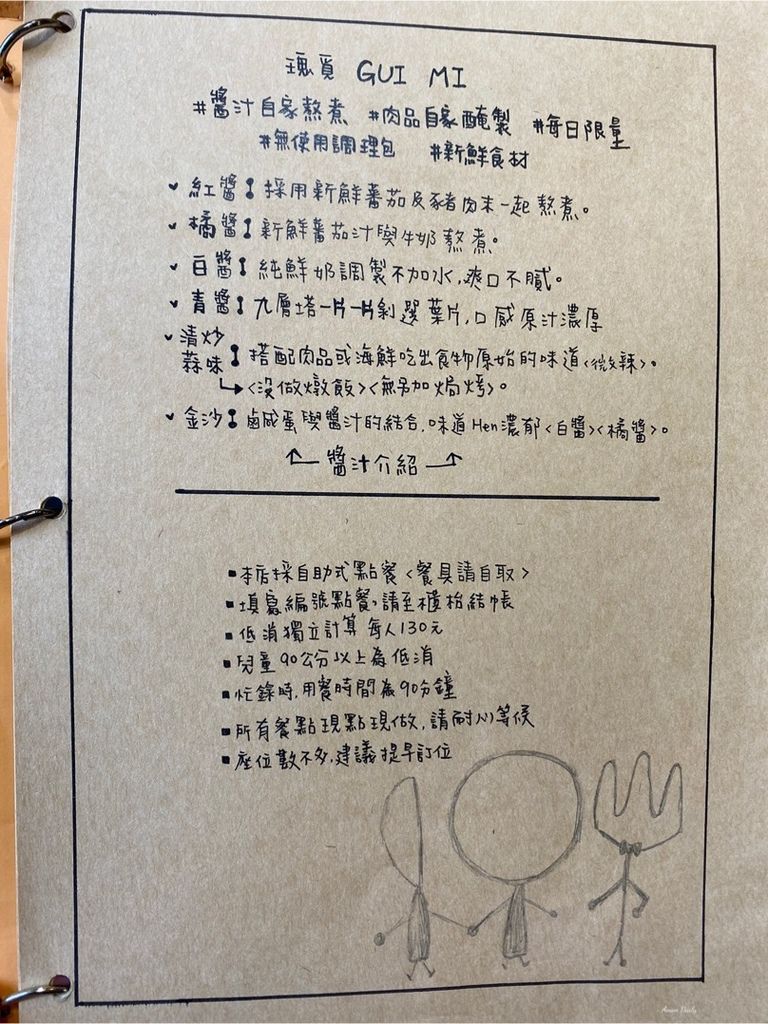 瑰覓 GUI MI
#醬汁自家熬煮 #肉品自家醃製 #每日限量
#無使用調理包 #新鮮食材
紅醬：採用新鮮蕃茄及豬肉末一起熬煮。
橘醬：新鮮蕃茄汁與牛奶熬煮。
白醬：純鮮奶調製不加水，爽口不膩。
青醬：九層塔一片一片剝選葉片，口感原汁濃厚
清炒
蒜味：搭配肉品或海鮮吃出食物原始的味道<微辣>。
↳<沒做燉飯><無另加焗烤>。
金沙：鹹蛋與醬汁的結合，味道Hen濃郁<白醬><橘醬>。
醬汁介紹
▪本店採自助式點餐<餐具請自取>
▪填寫編號點餐，請至櫃枱結帳
▪低消獨立計算 每人130元
▪兒童90公分以上為低消
▪忙錄時，用餐時間為90分鐘
▪所有餐點現點現做，請耐心等候
▪座位數不多，建議提早訂位